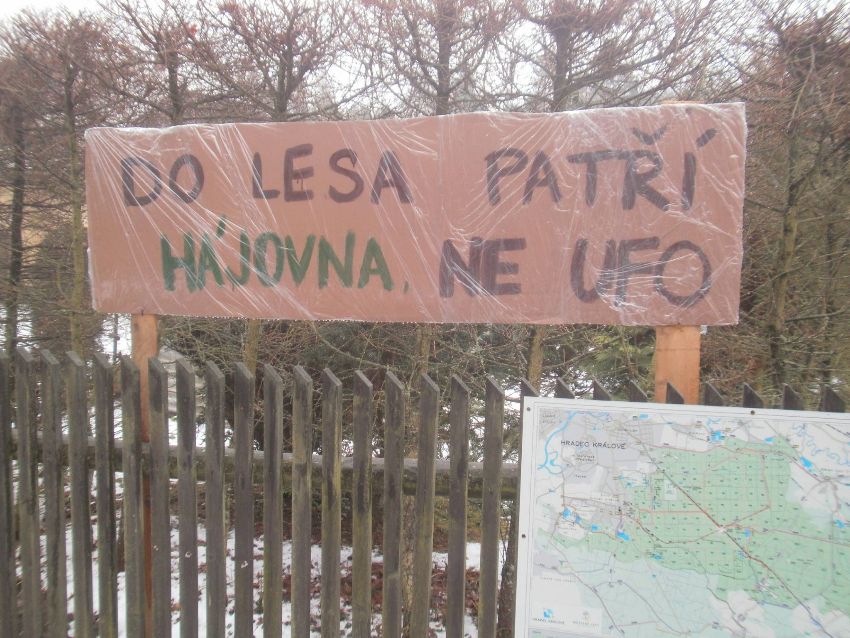 DO LESA PATŘÍ
HÁJOVNA, NE UFO
HRADEC KRÁLOVÉ